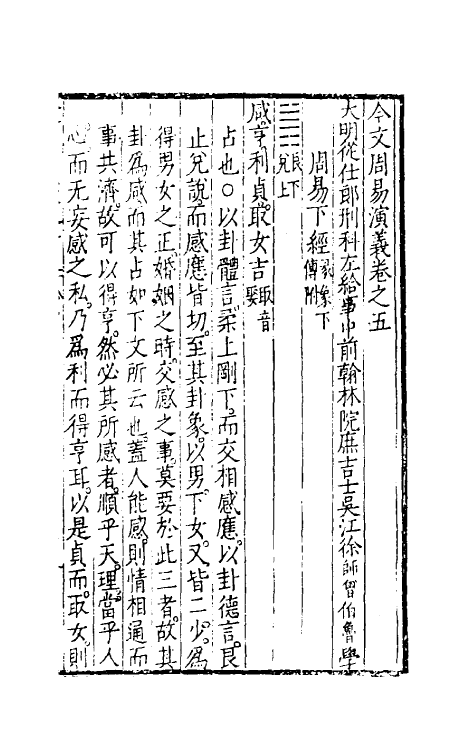 今文周易演義卷之五
大明從仕郎刑科左給事中前翰林院庶吉士吳江徐師曾伯魯學
周易下經彖象下傳附
艮下兌上
咸亨利貞取女吉取音娶
占也○以卦體言柔上剛下而交相感應以卦德言艮
止兌說而感應皆切至其卦象以男下女又皆二少爲
得男女之正婚姻之時交感之事莫要於此三者故其
卦爲咸而其占如下文所云也蓋人能感則情相通而
事共濟故可以得亨然必其所感者順乎天理當乎人
心而无妄感之私乃爲利而得亨耳以是貞而取女則